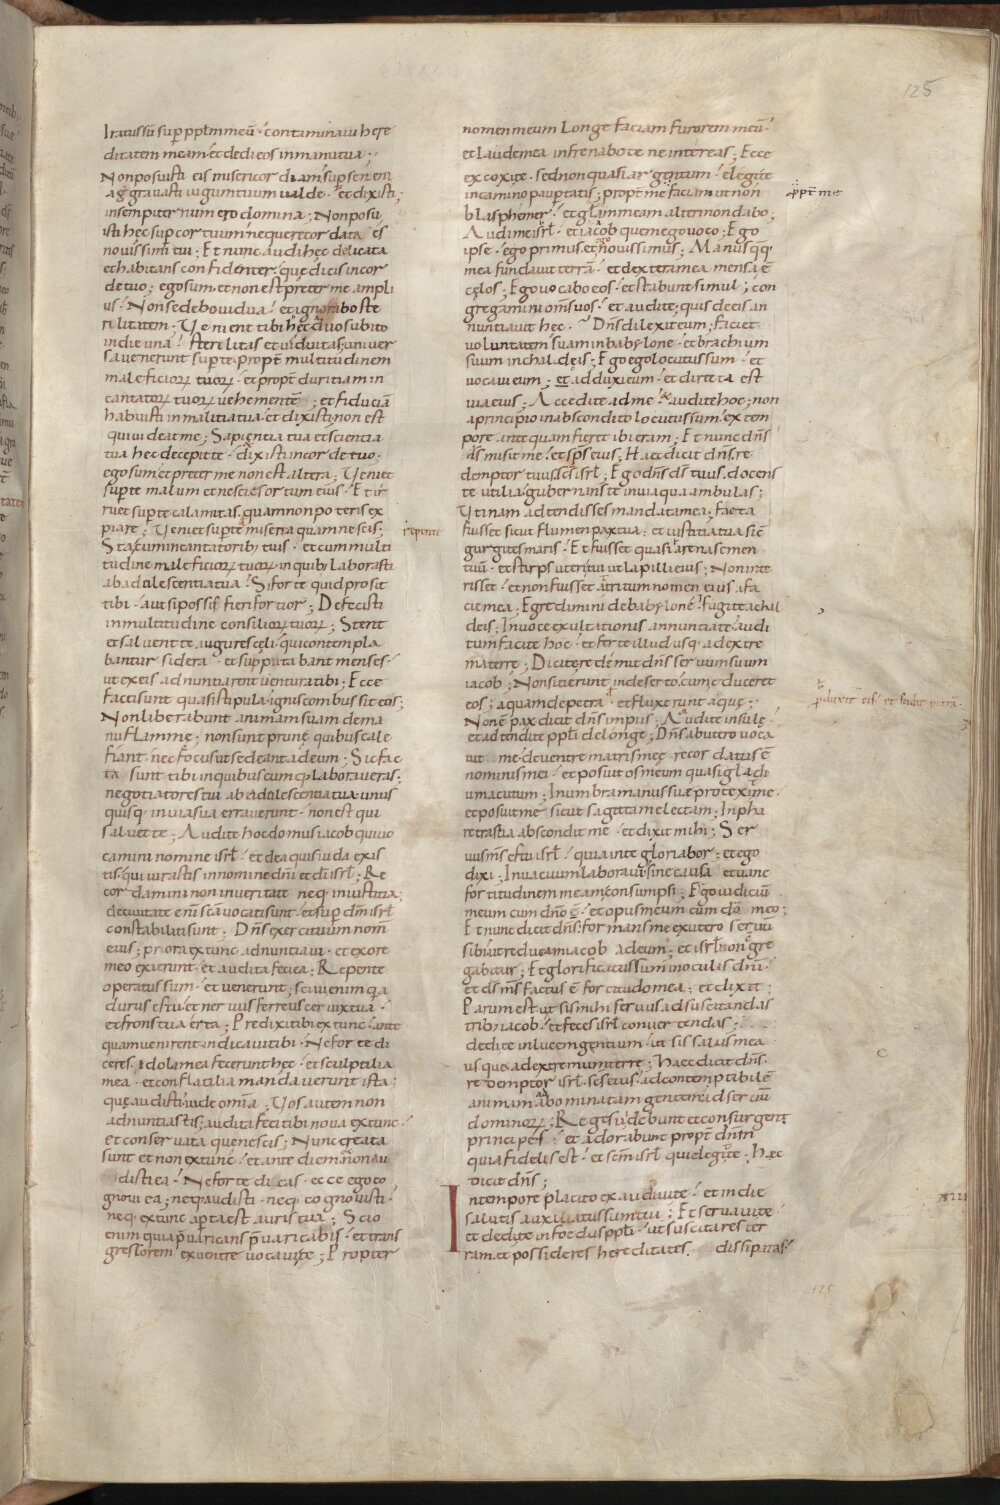 125
Iratus sū sup̄ pptm meū · contaminavi here
ditatem meam · et dedi eos in manu tua ;
Non posuisti eis misericordiam · sup senem
aggravasti iugum tuum valde · et dixisti ;
in sempiternum ero domina ; Non posu
isti hęc sup cor tuum neque recordata es
novissimi tui ; Et nunc audi hęc delicata
et habitans confidenter · quę dicis in cor
de tuo ; ego sum et non est preter me ampli
us · Non sedebo vidua · et ignorabo ste
rilitatem · Venient tibi hęc duo subito
in die una · sterelitas et viduitas · univer
sa venerunt sup te · propt multitudinem
maleficiorꝝ tuorꝝ · et propt duritiam in
cantatorꝝ tuorꝝ vehementē ; et fiduciā
habuisti in malitia tua · et dixisti non est
qui videat me ; Sapientia tua et scientia
tua hec decepit te · dixisti in corde tuo ·
ego sum et preter me non est altera ; Veniet
sup te malum et nescies ortum eius · Et ir
ruet sup te calamitas · quam non poteris ex
piare ; Veniet sup te miseria quam nescis ;
repente
Sta cum incantatoribꝫ tuis · et cum multi
tudine maleficiorꝝ tuorꝝ in quibꝫ laborasti
ab adolescentia tua · Si forte quid prosit
tibi · aut si possis fieri fortior ; Defecisti
in multitudine consiliorꝝ tuorꝝ ; Stent
et salvent te augures cęli · qui contempla
bantur sidera · et supputabant menses ·
ut ex eis adnuntiarent ventura tibi ; Ecce
facti sunt quasi stipula · ignis combussit eos ;
Non liberabunt animam suam de ma
nu flammę ; non sunt prunę quibus cale
fiant · nec focus ut sedeant ad eum ; Sic fac
ta sunt tibi in quibuscumqꝫ laboraveras ;
negotiatores tui ab adolescentia tua · unus
quisqꝫ in via sua erraverunt · non est qui
salvet te ; Audite hoc domus iacob qui vo
camini nomine isrł · et de aquis iuda exis
tis · qui iurastis in nomine dn̄i et di isrł ; Re
cordamini non in veritate neqꝫ in iustitia ;
de civitate eni scā vocati sunt · et sup dm̄ isrł
constabiliti sunt · Dn̄s exercituum nom̄
eius ; priora ex tunc adnuntiavi · et ex ore
meo exierunt · et audita feci ea ; Repente
operatus sum · et venerunt ; scivi enim q̄a
durus es tu · et nervus ferreus cervix tua ·
et frons tua ęrea ; Predixi tibi ex tunc · ante
quam venirent indicavi tibi · Ne forte di
ceres · idola mea fecerunt hęc · et sculptilia
mea · et conflatilia mandaverunt ista ;
quę audisti vide omia ; Vos autem non
adnuntiastis · audita feci tibi nova ex tunc ·
et conservata que nescis ; Nunc creata
sunt et non ex tunc · et ante diem · et non au
disti ea · Ne forte dicas · ecce ego co
gnovi ea ; neqꝫ audisti · neqꝫ cognovisti ·
neqꝫ ex tunc aperta est auris tua ; Scio
enim quia p̄varicans p̄varicabis · et trans
gressorem ex ventre vocavi te ; Propter
nomen meum longe faciam furorem meū ·
et laude mea infrenabo te ne intereas ; Ecce
excoxi te · sed non quasi argentum · elegi te
in camino paupertatis ; propt me faciam ut non
ppt̄ me
blasphemer · et głam meam alteri non dabo ;
Audi me isrł · et iacob quem ego voco ; Ego
ipse · ego primus · et ego novissimus ; Manus q̄qꝫ
mea fundavit terrā · et dextera mea mensa ē
cęlos ; Ego vocabo eos · et stabunt simul ; con
gregamini om̄s vos · et audite ; quis de eis an
nuntiavit hec · Dn̄s dilexit eum ; faciet
voluntatem suam in babylone · et brachium
suum in chaldęis ; Ego ego locutus sum · et
vocavi eum ; et adduxi eum · et directa est
via eius ; Accedite ad me · et audite hoc ; non
a principio in abscondito locutus sum · ex tem
pore ante quam fieret ibi eram ; Et nunc dn̄s
ds̄ misit me · et sp̄s eius ; Haec dicit dn̄s · re
demptor tuus scs̄ isrł ; Ego dn̄s ds̄ tuus · docens
te utilia · gubernans te in via qua ambulas ;
Utinam adtendisses mandata mea ; facta
fuisset sicut flumen pax tua · et iustitia tua sic
gurgites maris · Et fuisset quasi arena semen
tuū · et stirps uteri tui ut lapilli eius ; Non inte
risset · et non fuisset adtritum nomen eius a fa
cie mea ; Egredimini de babylone · fugite a chal
deis ; In voce exultationis annuntiate · audi
tum facite hoc · et ferte illud usqꝫ ad extre
ma terrę ; Dicite redemit dn̄s servum suum
iacob ; Non sitierunt in deserto · cum educeret
eos ; aquam de petra · et fluxerunt aquę ;
Non ē pax dicit dn̄s impiis ; Audite insulę
et adtendite ppłi de longe ; Dn̄s ab utero voca
vit me · de ventre matris meę recordatus ē
nominis mei · et posuit os meum quasi gladi
um acutum ; In umbra manus suę protexit me ·
et posuit me sicut sagittam electam ; In pha
retra sua abscondit me · et dixit mihi ; Ser
vus ms̄ es tu isrł · quia in te gloriabor ; et ego
dixi ; In vacuum laboravi sine causa et vane
fortitudinem meam consumpsi ; Ergo iudiciū
meum cum dn̄o ē · et opus meum cum dō meo ;
Et nunc dicit dn̄s · formans me ex utero servū
sibi · ut reducam iacob ad eum ; et isrł non gre
gabitur ; Et glorificatus sum in oculis dn̄i ·
et ds̄ ms̄ factus ē fortitudo mea ; et dixit ;
Parum est ut sis mihi servus ad suscitandas
tribꝫ iacob · et feces isrł convertendas ;
dedi te in lucem gentium · ut sis salus mea
usque ad extremum terrę ; Haec dicit dn̄s ·
redemptor isrł · scs̄ eius · ad contemptibilē
animam · ad abominatam gentem · ad servū
dominorꝝ ; Reges videbunt et consurgent
principes · et adorabunt propt dn̄m
quia fidelis est · et scm̄ isrł qui elegit te · Hęc
dicit dn̄s ;
In tempore placito exaudivi te · et in die
XIIII
salutis auxiliatus sum tui ; Et servavi te
et dedi te in foedus ppłi · ut suscitares ter
ram · et possideres hereditates · dissipatas ·
125